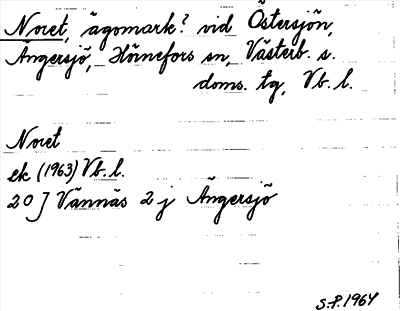 Noret, ägomark? vid Östersjön,
Ängersjö, Hörnefors sn, Västerb. s.
doms. tg, Vb. l.
Noret
ek (1963) Vb. l.
20 J Vännäs 2 j Ängersjö
S.P. 1964